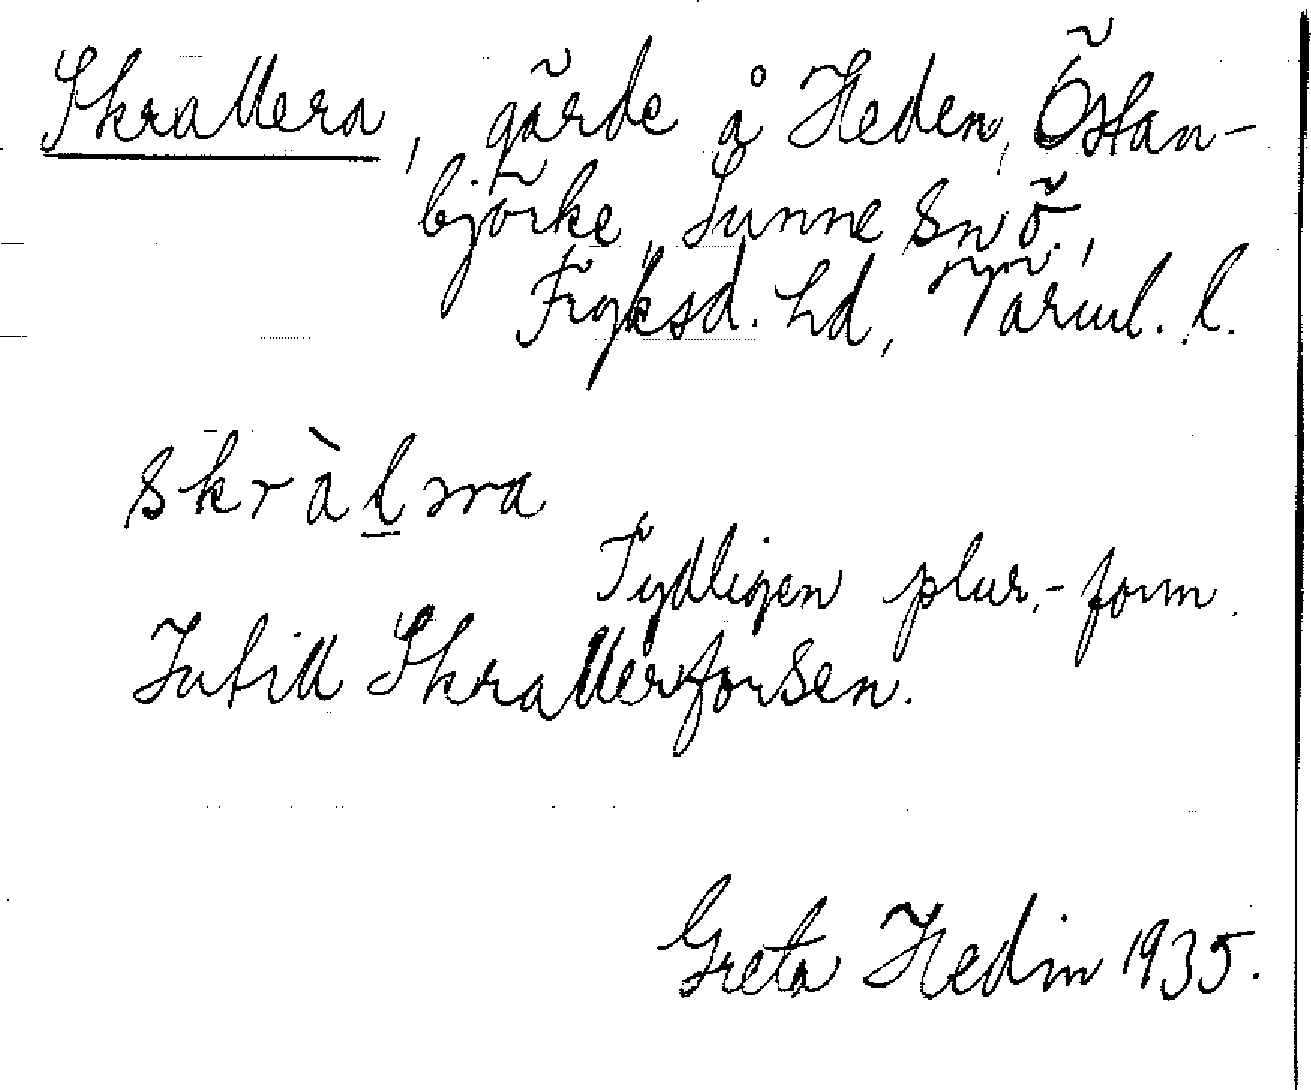 Skrallera, gärde å Heden, Östan-
björke, Sunne sn ö.,
Fryksd. hd, Värml. l.
skràl̲ɔra
Tydligen plur.-form.
Intill Skrallerforsen.
Greta Hedin 1935.